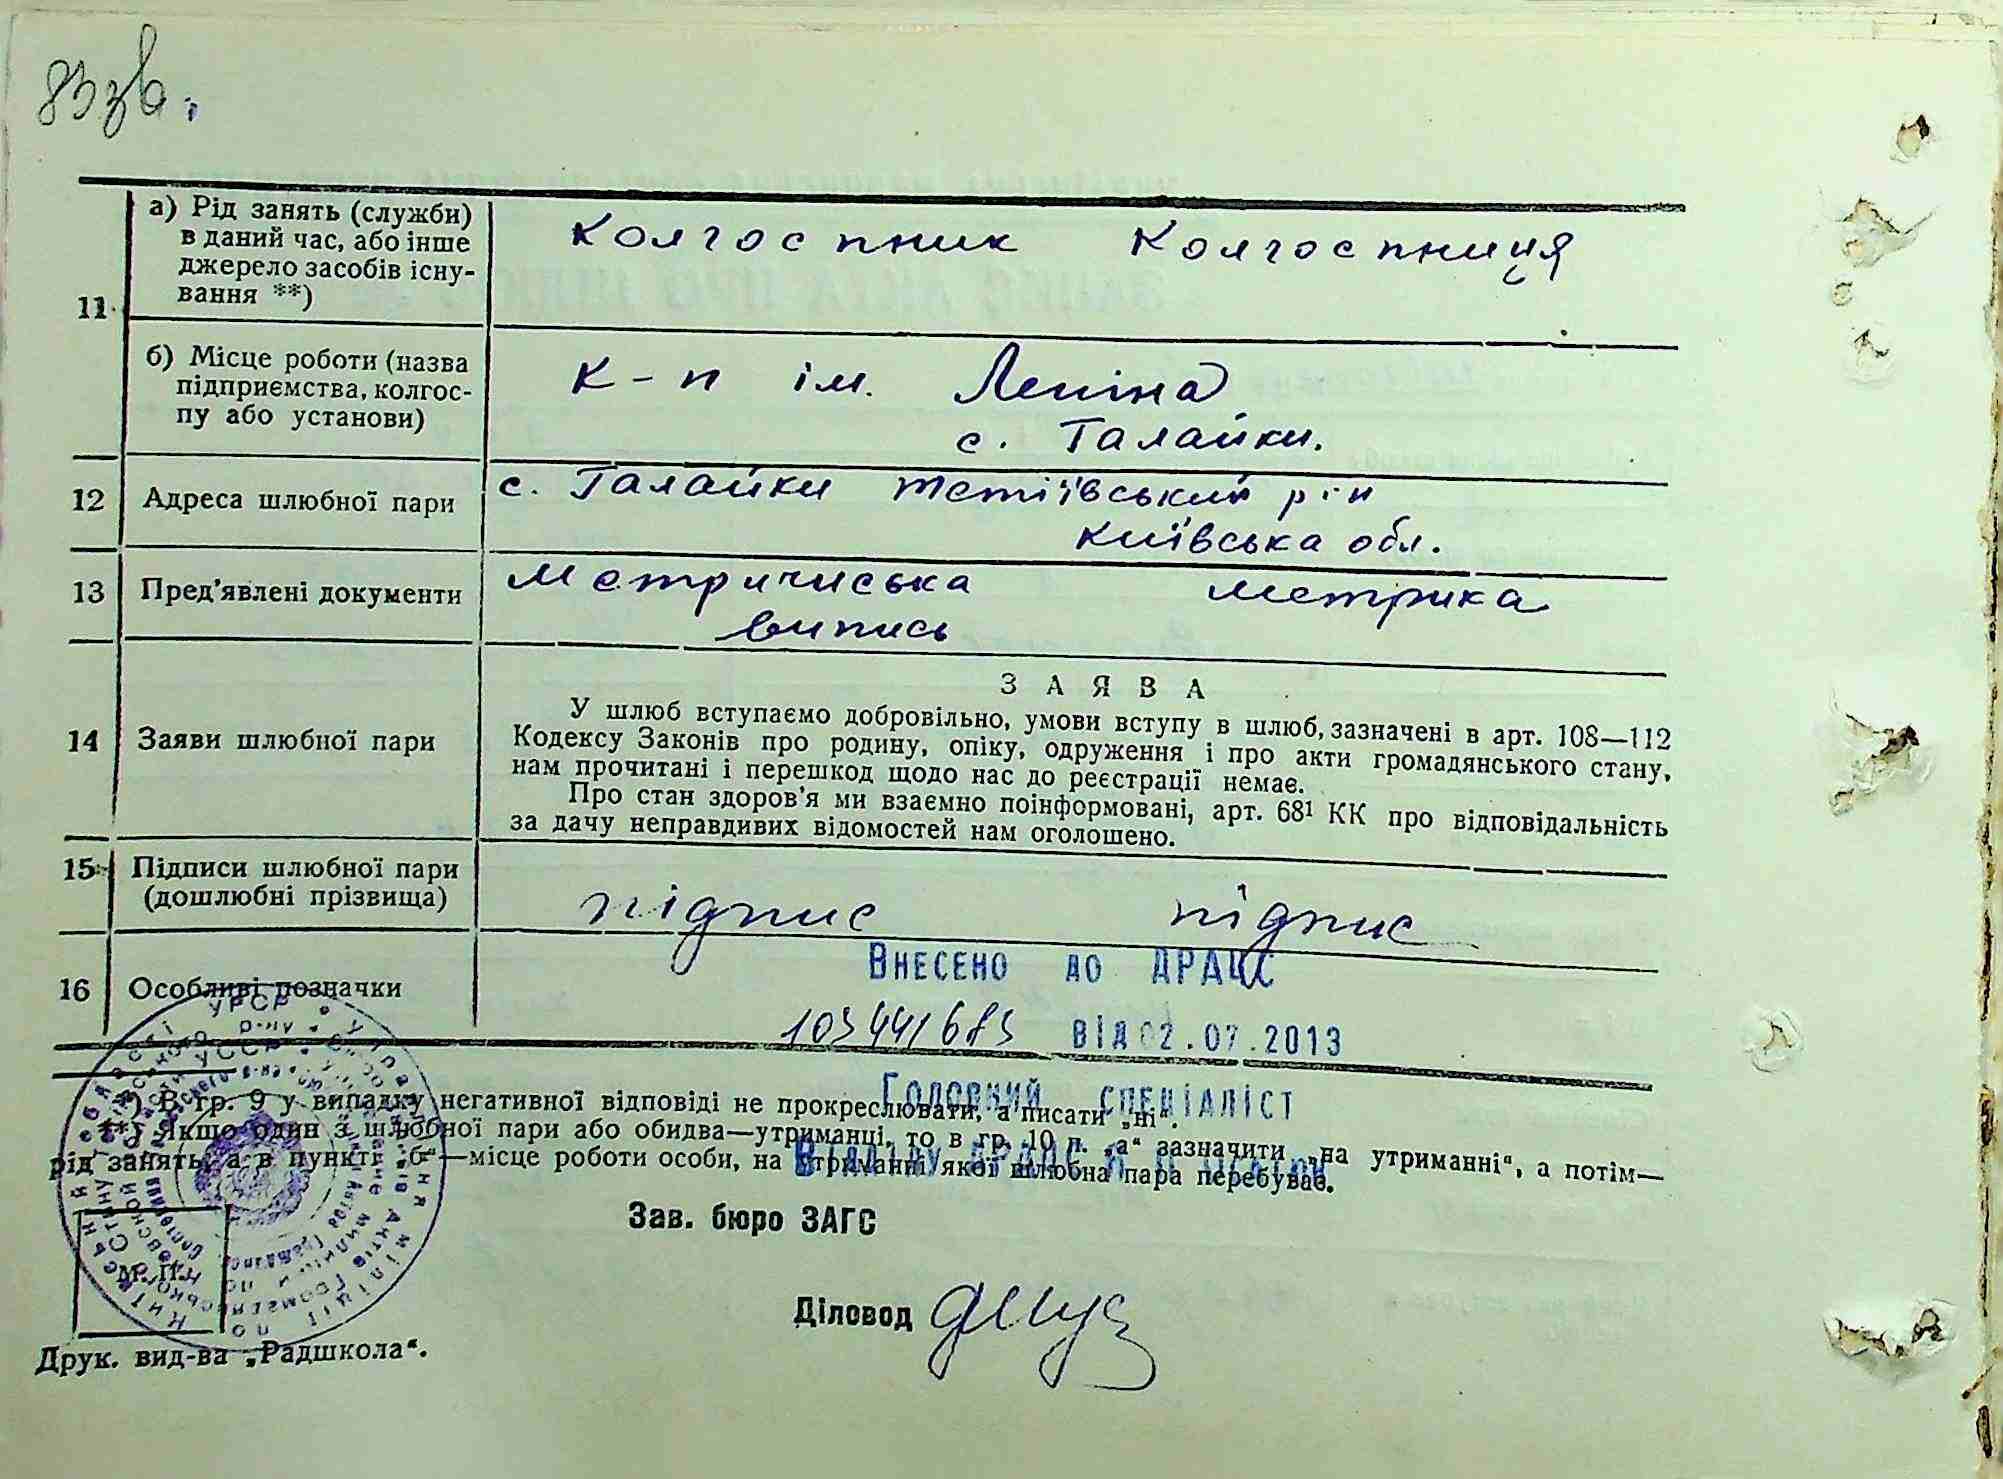 83 зв.
11
а) Рід занять (служби)
в даний час, або інше
джерело засобів існу-
вання **)
колгоспник колгоспниця
б) Місце роботи (назва
підприємства, колгос-
пу або установи)
к-п ім. Леніна
с. Галайки.
12 Адреса шлюбної пари
с. Галайки тетіївський р-н
київська обл.
13 Пред'явлені документи
метричиська метрика
випись
14 Заяви шлюбної пари
ЗАЯВА
У шлюб вступаємо добровільно, умови вступу в шлюб, зазначені в арт. 108—112
Кодексу Законів про родину, опіку, одруження і про акти громадянського стану,
нам прочитані і перешкод щодо нас до реєстрації немає.
Про стан здоров'я ми взаємно поінформовані, арт. 68¹ КК про відповідальність
за дачу неправдивих відомостей нам оголошено.
15 Підписи шлюбної пари
(дошлюбні прізвища)
підпис підпис
16 Особливі позначки
Внесено до ДРАЦС
103441683 від 02.07.2013
Головний спеціаліст
Відділу ДРАЦС
*) В гр. 9 у випадку негативної відповіді не прокреслювати, а писати „ні“.
**) Якщо один з шлюбної пари або обидва—утриманці, то в гр. 10 п. „а“ зазначити „на утриманні“, а потім—
рід занять, а в пункті „б“—місце роботи особи, на утриманні якої шлюбна пара перебуває.
Зав. бюро ЗАГС
М. П.
Діловод
Друк. вид-ва „Радшкола“.